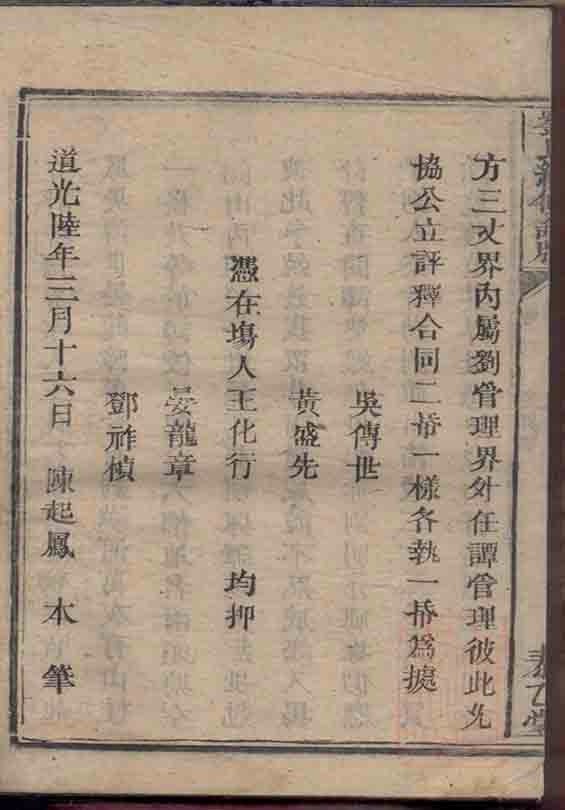 方三丈界內屬劉管理界外任譚管理彼此允
協公立評釋合同二帋一樣各執一帋爲據
吳傳世
黃盛先
憑在塲人王化行 均押
晏龍章
鄧祚楨
道光陸年三月十六日 陳起鳳 本筆